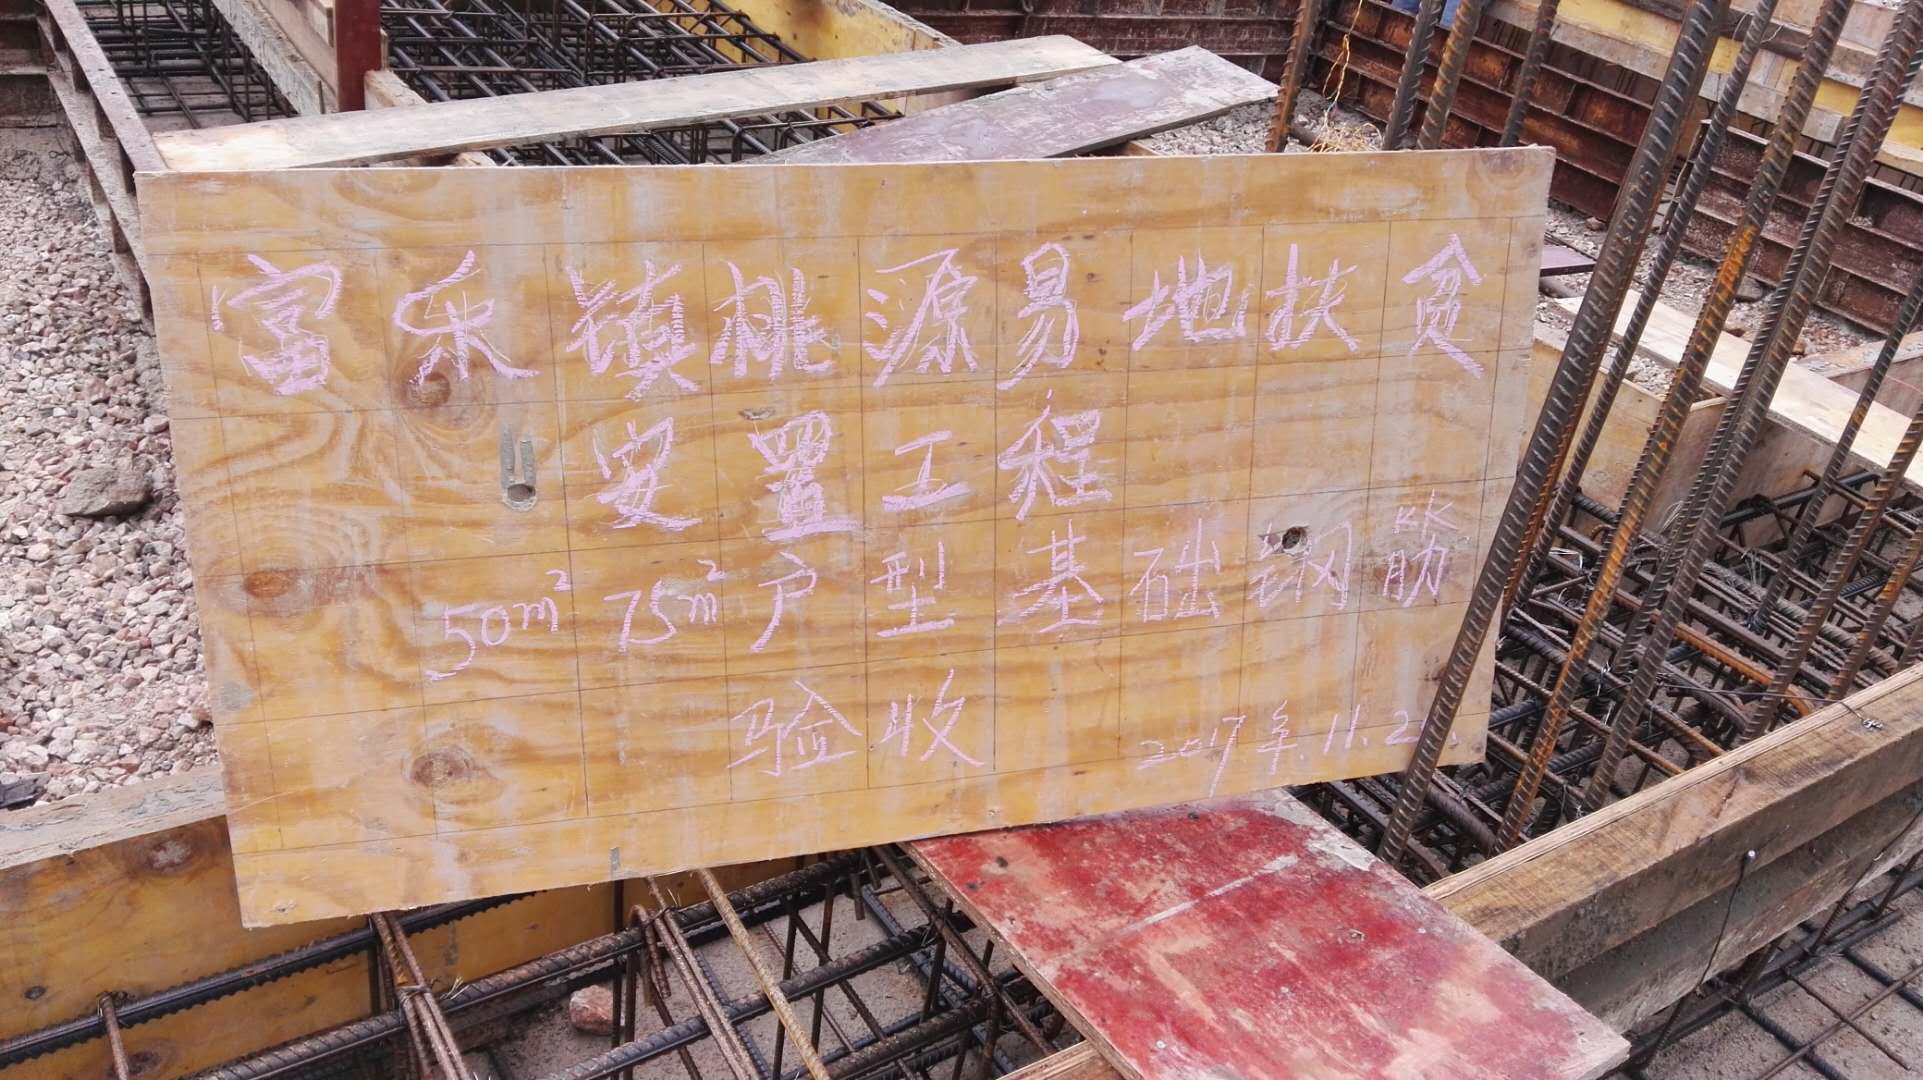 富乐镇桃源易地扶贫
安置工程
50m² 75m²户型基础钢筋
验收
2017年.11.2